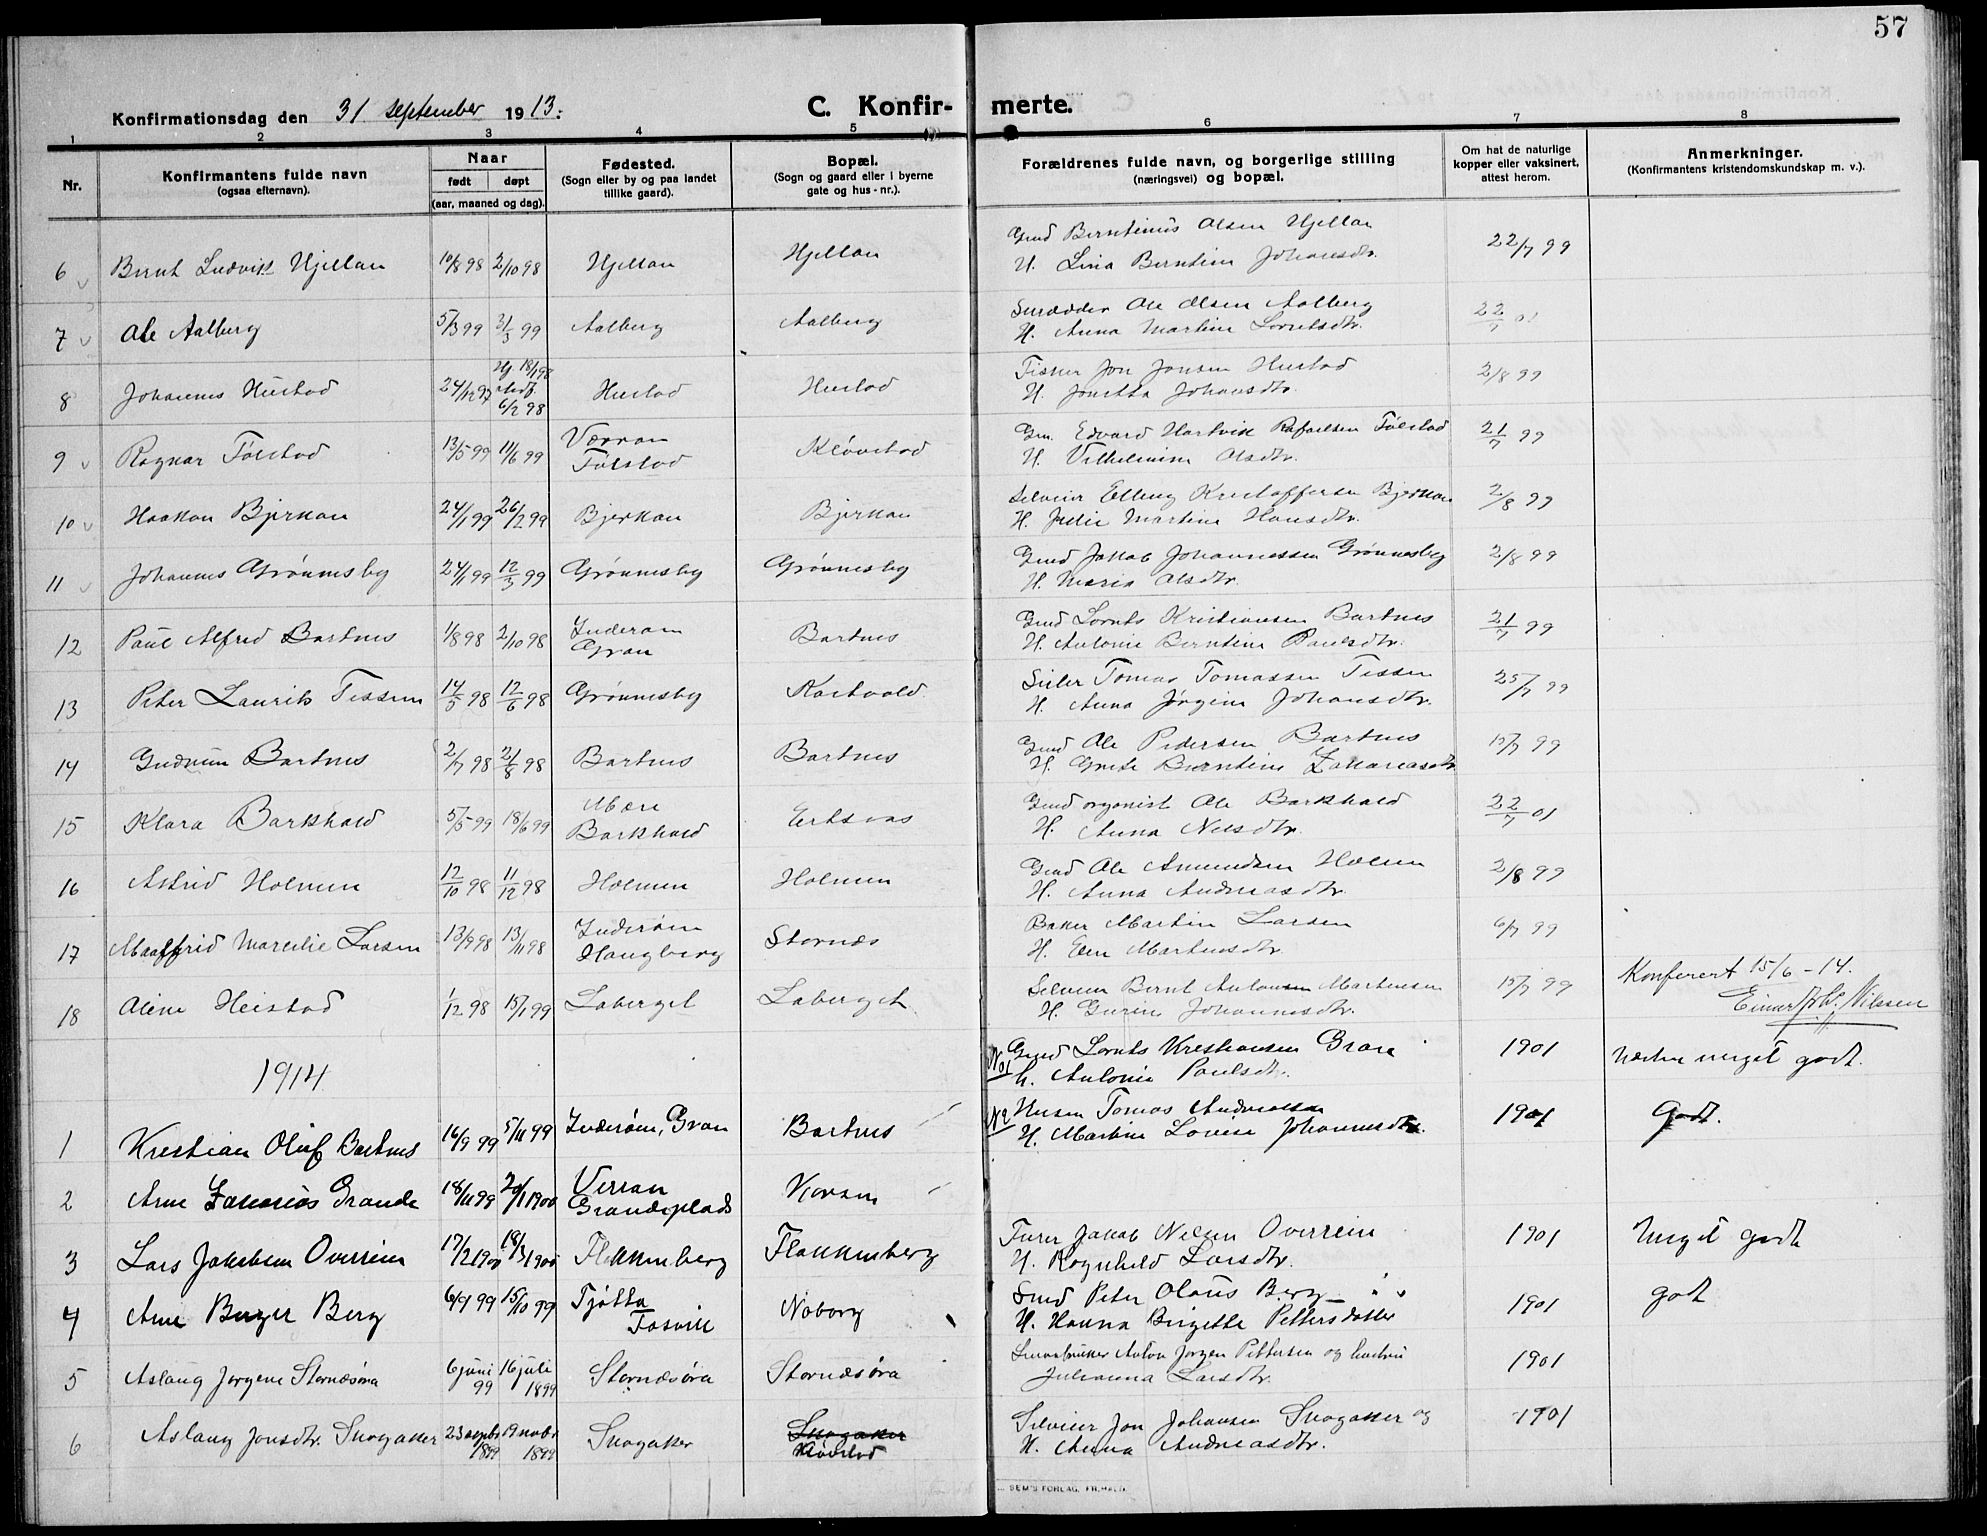 57
Konfirmationsdag den 31 september 1913.
C. Konfir- merte.
1 2 3 4 5 6 7 8
Nr.
Konfirmantens fulde navn
(ogsaa efternavn).
Naar
født døpt
(aar, maaned og dag).
Fødested.
(Sogn eller by og paa landet
tillike gaard).
Bopæl.
(Sogn og gaard eller i byerne
gate og hus-nr.).
Forældrenes fulde navn, og borgerlige stilling
(næringsvei) og bopæl.
Om hat de naturlige
kopper eller vaksinert,
attest herom.
Anmerkninger.
(Konfirmantens kristendomskundskap m. v.).
6 Bernt Ludvik Hjellan 10/8 98 2/10 98 Hjellan Hjellan Gmd Berntinus Olsen Hjellan 22/7 99
H. Lina Berntine Johansdtr.
7 Ole Aalberg 5/3 99 31/3 99 Aalberg Aalberg Skrædder Ole Olsen Aalberg 22/7 01
H. Anna Martine Lorntsdtr.
8 Johannes Hustad 24/12 97 Hj. 18/1 98 stadf. 6/2 98 Hustad Hustad Fisker Jon Jonsen Hustad 2/8 99
H. Jonetta Johansdtr.
9 Ragnar Følstad 13/5 99 11/6 99 Værran Følstad Kløvstad Gm. Edvard Hartvik Rafaelsen Følstad 21/7 99
H. Vilhelmine Olsdtr.
10 Haakon Bjerkan 24/1 99 26/2 99 Bjerkan Bjerkan Selveier Elling Kristoffersen Bjerkan 2/8 99
H. Julie Martine Hansdtr.
11 Johannes Grønnesby 24/1 99 12/3 99 Grønnesby Grønnesby Gmd Jakob Johannessen Grønnesby 2/8 99
H. Maria Olsdtr.
12 Paul Alfred Bartnes 1/8 98 2/10 98 Inderøen Gran Bartnes Gmd Lornts Kristiansen Bartnes 21/7 99
H. Antonie Berntine Paulsdtr.
13 Peter Laurits Tessem 14/5 98 12/6 98 Grønnesby Kastvold Sæler Tomas Tomassen Tessem 25/7 99
H. Anna Jørgine Johansdtr.
14 Gudrun Bartnes 2/7 98 21/8 98 Bartnes Bartnes Gmd Ole Pedersen Bartnes 15/7 99
H. Grete Berntine Zakariasdtr
15 Klara Barkhald 5/5 99 18/6 99 Mære Barkhald Ertsaas Gmd organist Ole Barkhald 22/7 01
H. Anna Nilsdtr.
16 Astrid Holmen 12/10 98 11/12 98 Holmen Holmen Gmd Ole Amundsen Holmen 2/8 99
H. Anna Andreasdtr.
17 Maaffrid Marelie Larsen 13/9 98 13/11 98 Inderøen Hangberg Stornæs Baker Martin Larsen 6/7 99
H. Elen Martinusdtr.
18 Aline Heistad 1/12 98 15/1 99 Laberget Laberget Selveier Bernt Antonsen Martinsen 15/7 99 Konferert 15/6 - 14.
H. Gurine Johannesdtr. Einar Nilssen
1914
No 1 Gmd Lornts Kristiansen Gran 1901 Næsten meget godt.
h. Antonie Paulsdtr.
1 Kristian Oluf Bartnes 16/9 99 5/11 99 Inderøen, Gran Bartnes N2 Husm Tomas Andreassen 1901 Godt.
H. Martine Lovise Johannesdtr.
2 Arne Zakarias Grande 18/11 99 20/1 1900 Verran Grandeplads Korsen
3 Lars Jakobsen Overrein 17/2 1900 18/3 1900 Flekkenberg Flakkenberg Furer Jakob Nilsen Overrein 1901 Meget godt
H. Ragnhild Larsdtr.
4 Arne Berger Berg 6/9 99 15/10 99 Tjøtta Fasvik Naborg Smed Peter Olaus Berg 1901 godt
H. Hanna Birgitte Pettersdatter
5 Aslaug Jørgene Stornæsøra 6 juni 99 16 juli 1899 Stornæsøra Stornæsøra Anton Jørgen Pettersen og hustru 1901
Julianna Larsdtr.
6 Aslaug Jonsdtr. Snogaker 23 septbr 1899 19 novbr 1899 Snogaker Snogaker Kløvstad Selveier Jon Johansen Snogaker og 1901
H. Anna Andreasdtr.
SEM'S FORLAG, FR.HALD.